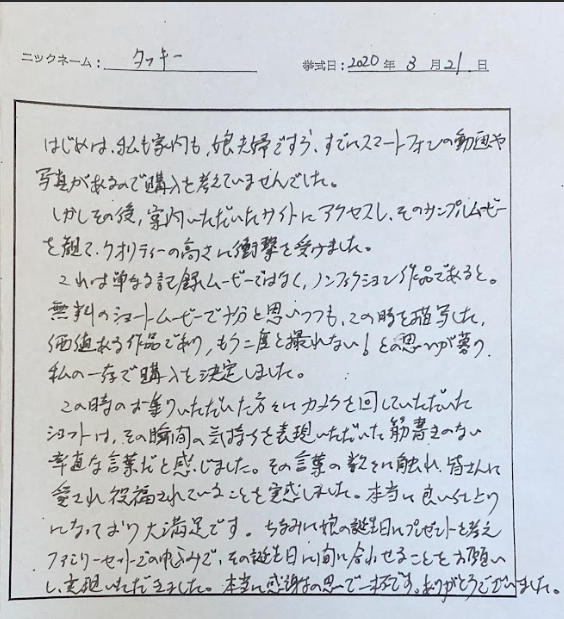 ニックネーム： タッキー 挙式日：2020年 3月21日
はじめは、私も家内も、娘夫婦ですら、すでにスマートフォンの動画や
写真があるので購入を考えていませんでした。
しかしその後、案内いただいたサイトにアクセスし、そのサンプルムービー
を観て、クオリティーの高さに衝撃を受けました。
これは単なる記録ムービーではなく、ノンフィクション作品であると。
無料のショートムービーで十分と思いつつも、この時を描写した、
価値ある作品であり、もう二度と撮れない！との思いが募り
私の一存で購入を決定しました。
この時のお集りいただいた方々にカメラを回していただいた
ショットは、その瞬間の気持ちを表現いただいた筋書きのない
率直な言葉だと感じました。その言葉の数々に触れ、皆さんに
愛され祝福されていることを実感しました。本当に良いしっとり
になっており大満足です。ちなみに娘の誕生日にプレゼントを考え
ファミリーセットでの申込みで、その誕生日に間に合わせることをお願い
し、実現いただきました。本当に感謝の思いで一杯です。ありがとうございました。